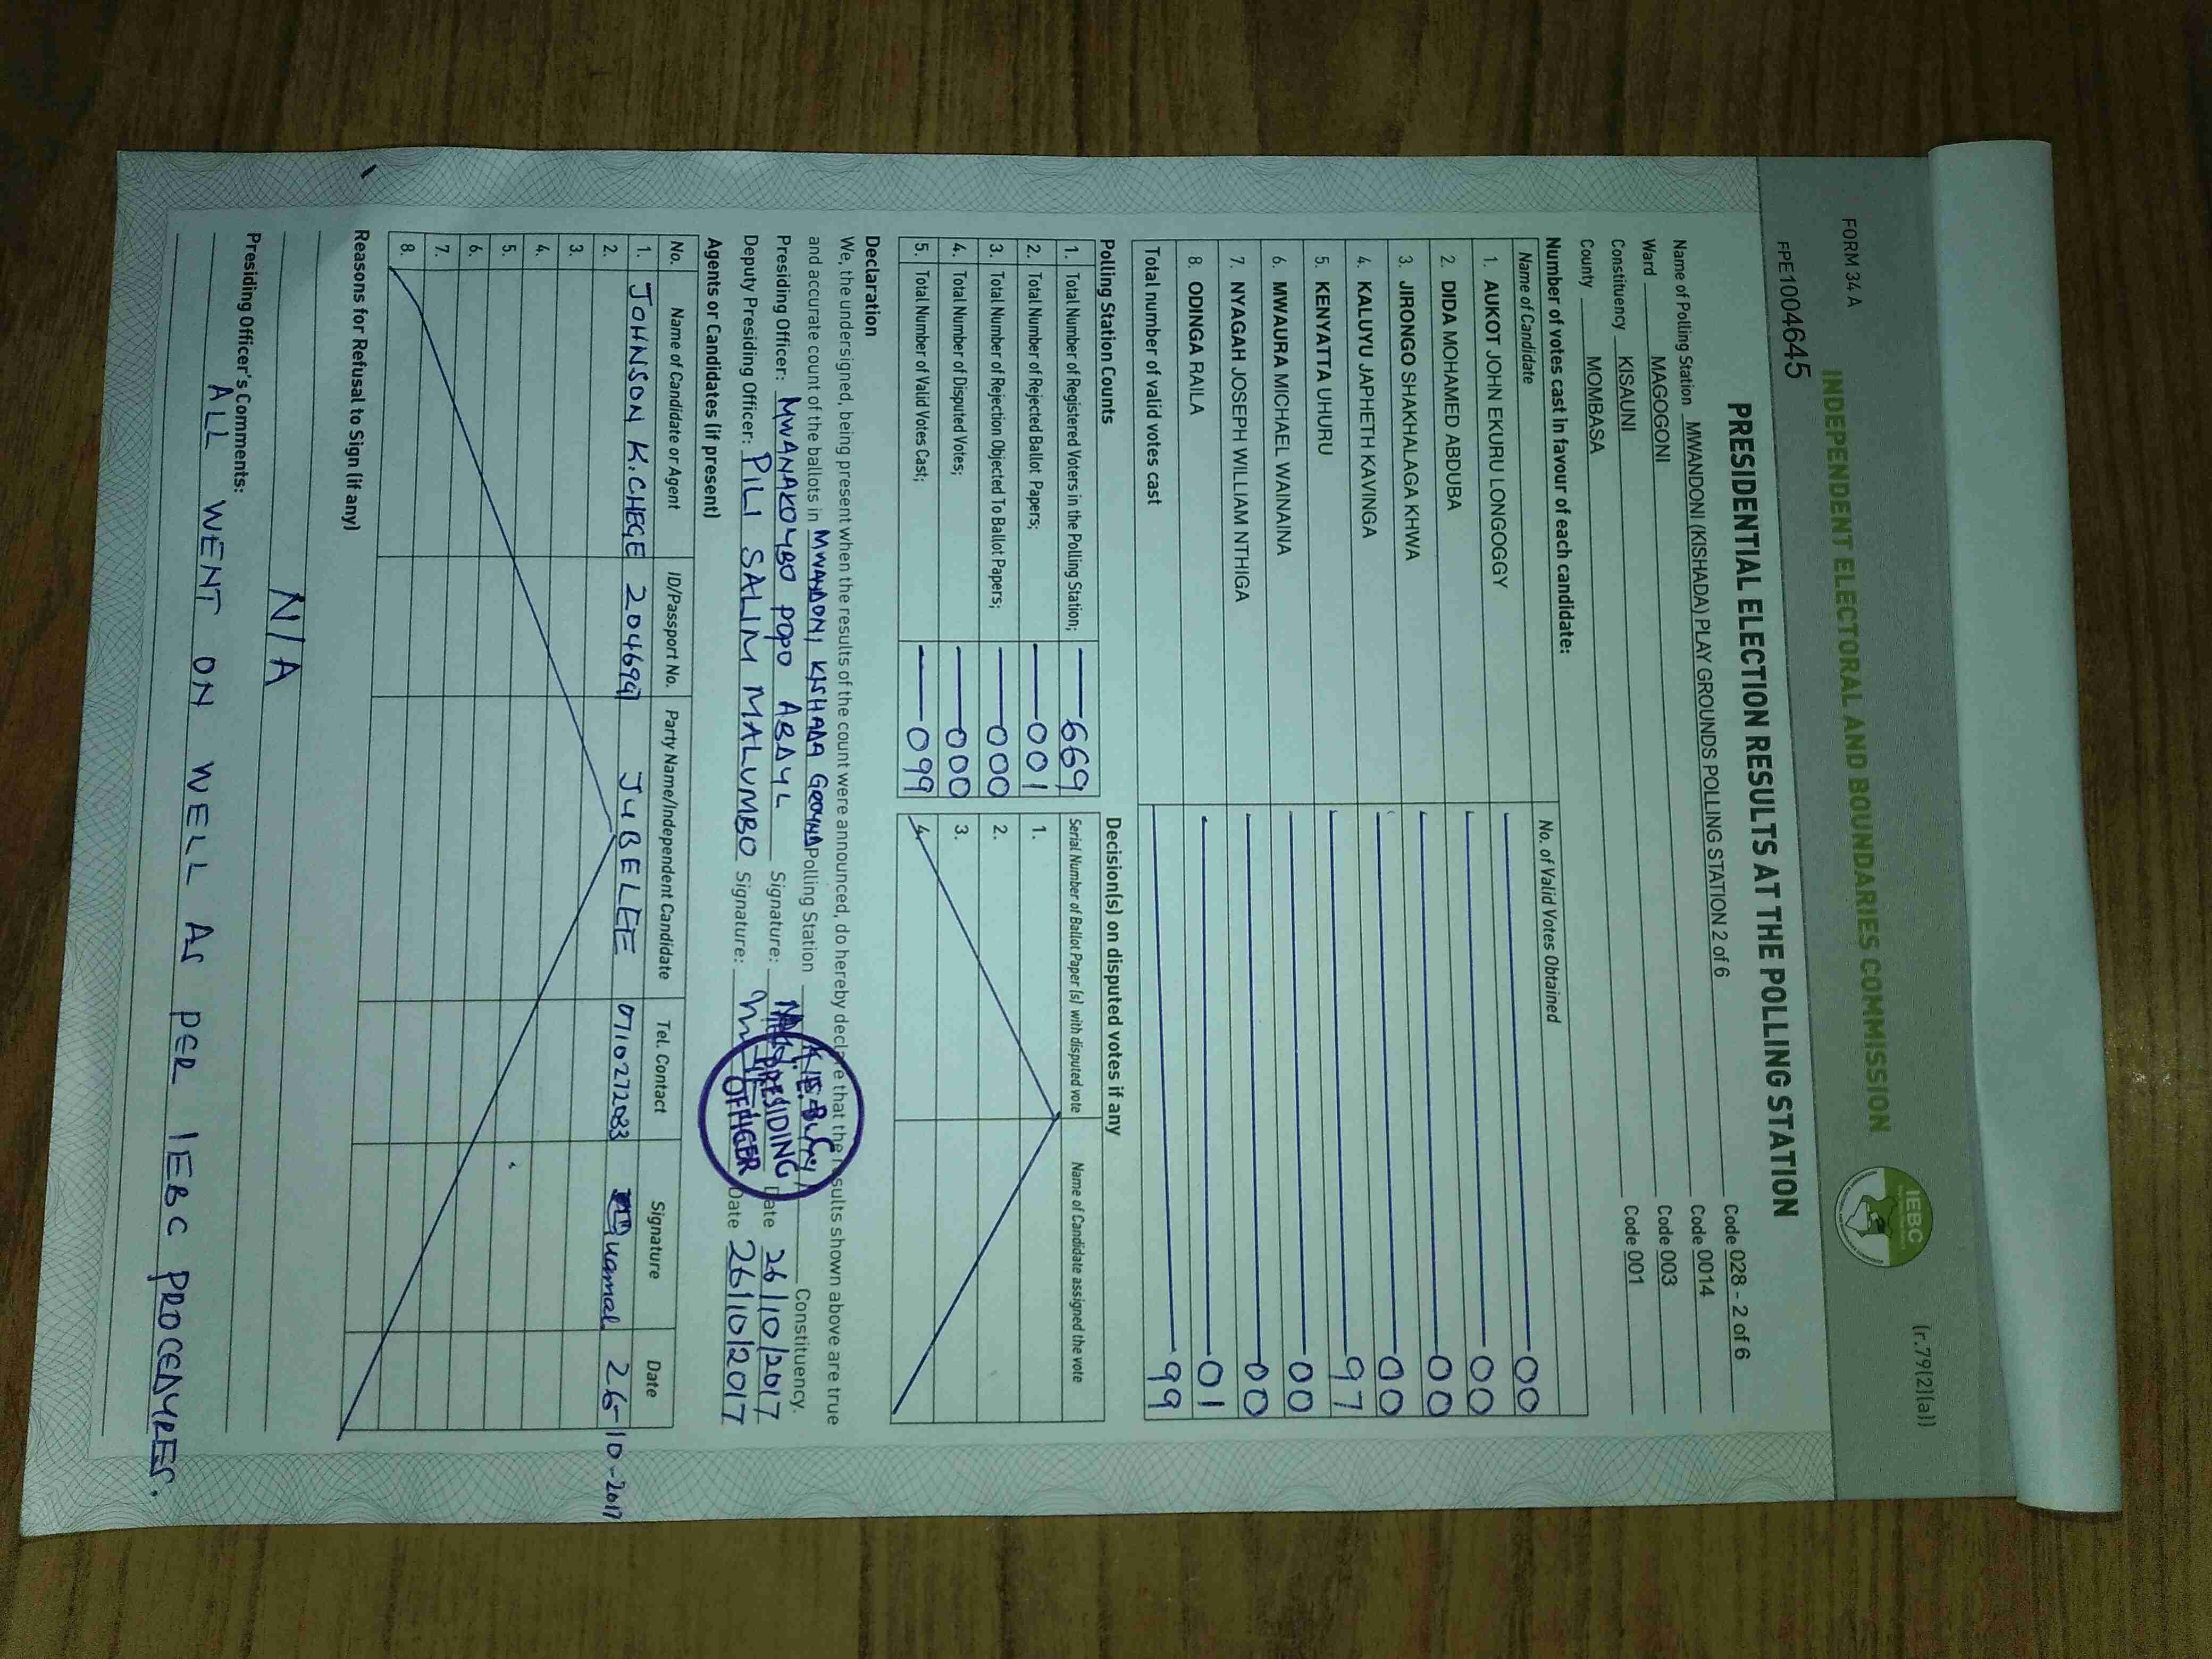 FORM 34 A
(r.79(2)(a))
INDEPENDENT ELECTORAL AND BOUNDARIES COMMISSION
IEBC
FPE1004645
PRESIDENTIAL ELECTION RESULTS AT THE POLLING STATION
Name of Polling Station MWANDONI (KISHADA) PLAY GROUNDS POLLING STATION 2 of 6 Code 028 - 2 of 6
Ward MAGOGONI Code 0014
Constituency KISAUNI Code 003
County MOMBASA Code 001
Number of votes cast in favour of each candidate:
Name of Candidate No. of Valid Votes Obtained
1. AUKOT JOHN EKURU LONGOGGY 00
2. DIDA MOHAMED ABDUBA 00
3. JIRONGO SHAKHALAGA KHWA 00
4. KALUYU JAPHETH KAVINGA 00
5. KENYATTA UHURU 97
6. MWAURA MICHAEL WAINAINA 00
7. NYAGAH JOSEPH WILLIAM NTHIGA 00
8. ODINGA RAILA 01
Total number of valid votes cast 99
Polling Station Counts
1. Total Number of Registered Voters in the Polling Station; 669
2. Total Number of Rejected Ballot Papers; 001
3. Total Number of Rejection Objected To Ballot Papers; 000
4. Total Number of Disputed Votes; 000
5. Total Number of Valid Votes Cast; 099
Decision(s) on disputed votes if any
Serial Number of Ballot Paper (s) with disputed vote Name of Candidate assigned the vote
1.
2.
3.
4.
Declaration
We, the undersigned, being present when the results of the count were announced, do hereby declare that the results shown above are true
and accurate count of the ballots in MWANDONI KISHADA GROUND Polling Station Constituency.
Presiding Officer: MWANAKOMBO POPO ABDUL Signature: Date 26/10/2017
Deputy Presiding Officer: PILI SALIM MALUMBO Signature: Date 26/10/2017
PRESIDING
OFFICER
Agents or Candidates (if present)
No. Name of Candidate or Agent ID/Passport No. Party Name/Independent Candidate Tel. Contact Signature Date
1. JOHNSON K.CHEGE 2046991 JUBELEE 0710272083 26-10-2017
2.
3.
4.
5.
6.
7.
8.
Reasons for Refusal to Sign (if any)
N/A
Presiding Officer's Comments:
ALL WENT ON WELL AS PER IEBC PROCEDURES.